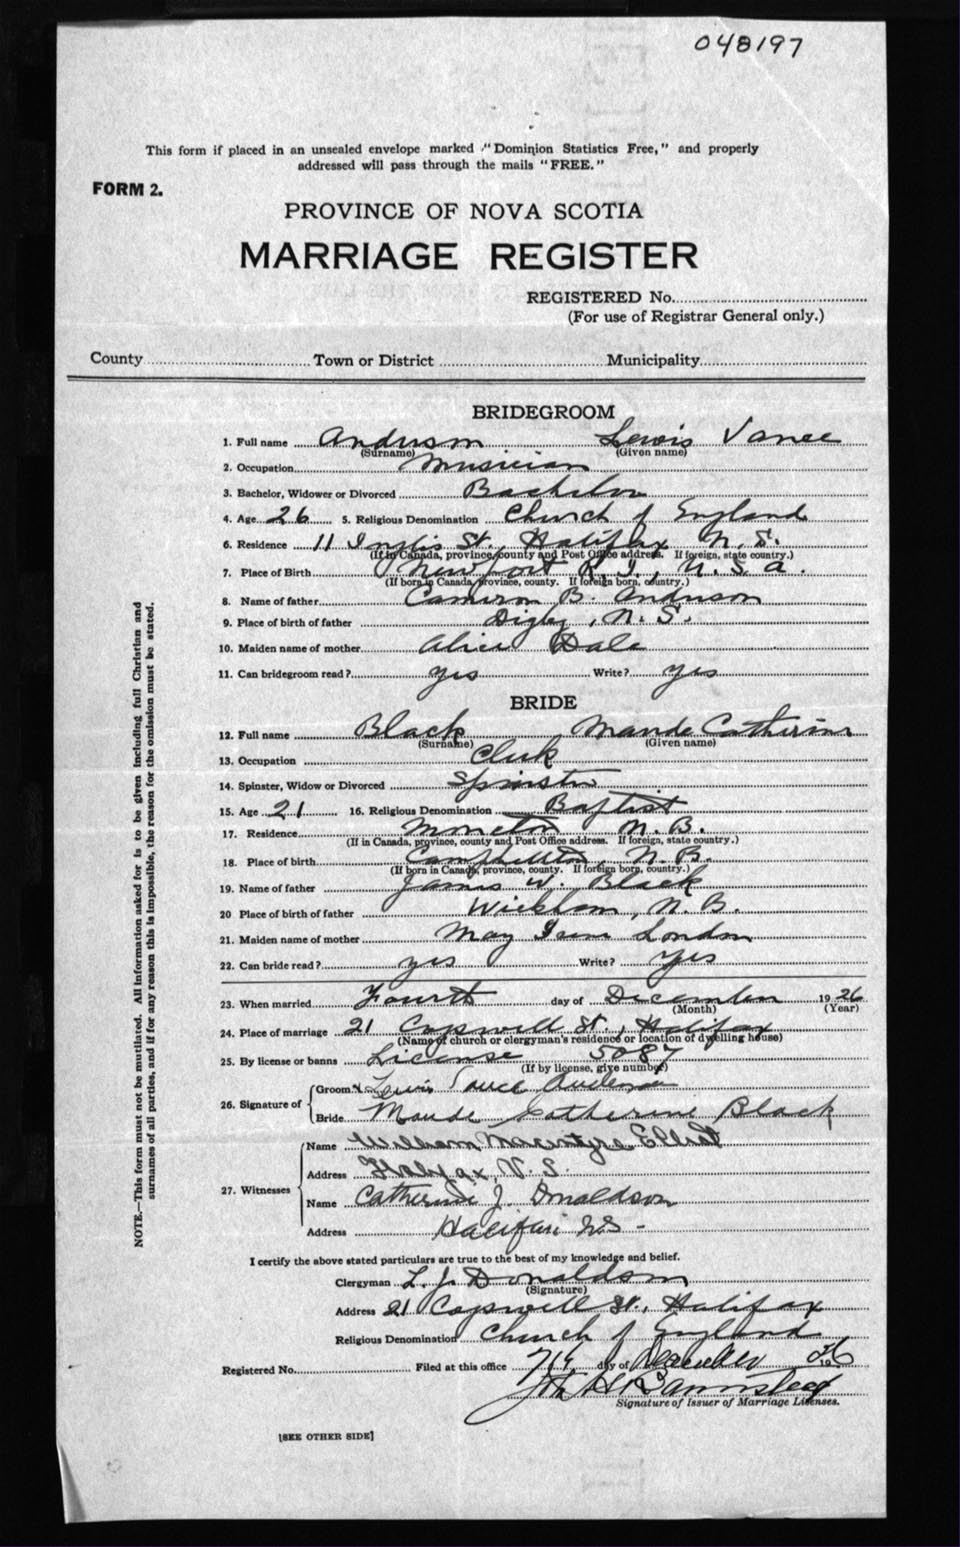 048197
This form if placed in an unsealed envelope marked "Dominion Statistics Free," and properly
addressed will pass through the mails "FREE."
FORM 2.
PROVINCE OF NOVA SCOTIA
MARRIAGE REGISTER
REGISTERED No.
(For use of Registrar General only.)
County Town or District Municipality
BRIDEGROOM
1. Full name Anderson Lewis Vance
(Surname) (Given name)
2. Occupation Musician
3. Bachelor, Widower or Divorced Bachelor
4. Age 26 5. Religious Denomination Church of England
6. Residence 11 Inglis St., Halifax N.S.
(If in Canada, province, county and Post Office address. If foreign, state country.)
7. Place of Birth Newport R.I., U.S.A.
(If born in Canada, province, county. If foreign born, country.)
8. Name of father Cameron B. Anderson
9. Place of birth of father Digby, N.S.
10. Maiden name of mother Alice Dale
11. Can bridegroom read? Yes Write? Yes
BRIDE
12. Full name Black Maude Catherine
(Surname) (Given name)
13. Occupation Clerk
14. Spinster, Widow or Divorced Spinster
15. Age 21 16. Religious Denomination Baptist
17. Residence Moncton N.B.
(If in Canada, province, county and Post Office address. If foreign, state country.)
18. Place of birth Campbellton, N.B.
(If born in Canada, province, county. If foreign born, country.)
19. Name of father James W. Black
20 Place of birth of father Wickham, N.B.
21. Maiden name of mother May London
22. Can bride read? Yes Write? Yes
23. When married Fourth day of December 1926
(Month) (Year)
24. Place of marriage 21 Cogswell St., Halifax
(Name of church or clergyman's residence or location of dwelling house)
25. By license or banns License 5087
(If by license, give number)
26. Signature of
Groom Lewis Vance Anderson
Bride Maude Catherine Black
27. Witnesses
Name William McIntyre Elliot
Address Halifax N.S.
Name Catherine J. Donaldson
Address Halifax N.S.
I certify the above stated particulars are true to the best of my knowledge and belief.
Clergyman L. J. Donaldson
(Signature)
Address 21 Cogswell St., Halifax
Religious Denomination Church of England
Registered No. Filed at this office 7th day of December 1926
Signature of Issuer of Marriage Licenses.
[SEE OTHER SIDE]
NOTE.—This form must not be mutilated. All information asked for is to be given including full Christian and
surnames of all parties, and if for any reason this is impossible, the reason for the omission must be stated.